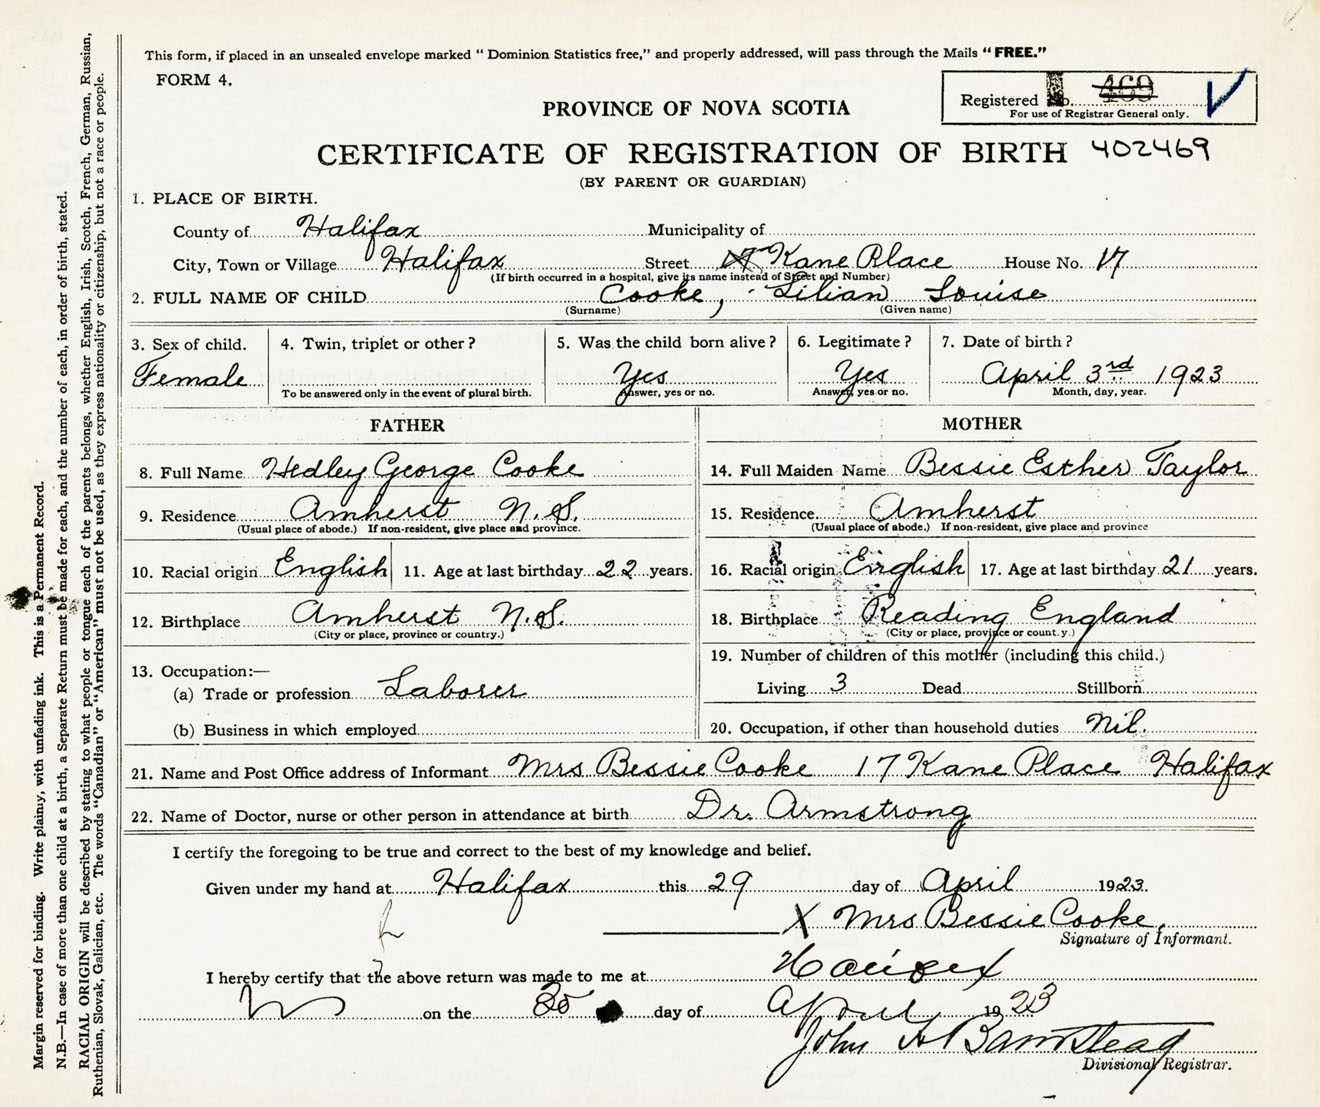 This form, if placed in an unsealed envelope marked " Dominion Statistics free," and properly addressed, will pass through the Mails " FREE."
FORM 4.
Registered No. 469
For use of Registrar General only.
PROVINCE OF NOVA SCOTIA
CERTIFICATE OF REGISTRATION OF BIRTH 402469
(BY PARENT OR GUARDIAN)
1. PLACE OF BIRTH.
County of Halifax Municipality of
City, Town or Village Halifax Street 17 Kane Place House No. 17
(If birth occurred in a hospital, give its name instead of Street and Number)
2. FULL NAME OF CHILD Cooke, Lilian Louise
(Surname) (Given name)
3. Sex of child. 4. Twin, triplet or other ? 5. Was the child born alive ? 6. Legitimate ? 7. Date of birth ?
Female Yes Yes April 3rd 1923
To be answered only in the event of plural birth. Answer, yes or no. Answer, yes or no. Month, day, year.
FATHER MOTHER
8. Full Name Hedley George Cooke 14. Full Maiden Name Bessie Esther Taylor
9. Residence Amherst N.S. 15. Residence Amherst
(Usual place of abode.) If non-resident, give place and province. (Usual place of abode.) If non-resident, give place and province
10. Racial origin English 11. Age at last birthday 22 years. 16. Racial origin English 17. Age at last birthday 21 years.
12. Birthplace Amherst N.S. 18. Birthplace Reading England
(City or place, province or country.) (City or place, province or count.y.)
19. Number of children of this mother (including this child.)
13. Occupation:—
(a) Trade or profession Laborer Living 3 Dead Stillborn
(b) Business in which employed 20. Occupation, if other than household duties Nil.
21. Name and Post Office address of Informant Mrs Bessie Cooke 17 Kane Place Halifax
22. Name of Doctor, nurse or other person in attendance at birth Dr. Armstrong
I certify the foregoing to be true and correct to the best of my knowledge and belief.
Given under my hand at Halifax this 29 day of April 1923.
X Mrs Bessie Cooke,
Signature of Informant.
I hereby certify that the above return was made to me at Halifax
on the 30 day of April 1923
John A Barnstead
Divisional Registrar.
Margin reserved for binding. Write plainly, with unfading ink. This is a Permanent Record.
N.B.—In case of more than one child at a birth, a Separate Return must be made for each, and the number of each, in order of birth, stated.
RACIAL ORIGIN will be described by stating to what people or tongue each of the parents belongs, whether English, Irish, Scotch, French, German, Russian,
Ruthenian, Slovak, Galician, etc. The words "Canadian" or "American" must not be used, as they express nationality or citizenship, but not a race or people.